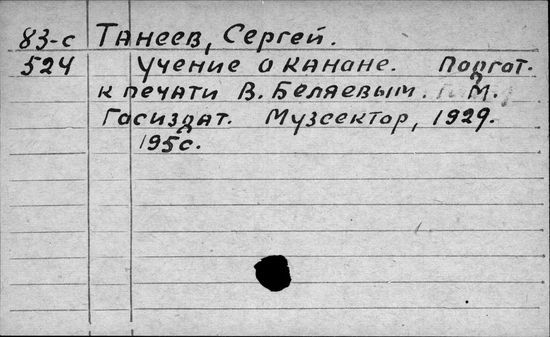 83-с Танеев, Сергей.
524 Учение о каноне. Подгот.
к печати В. Беляевым. М.
Госиздат. Музсектор, 1929.
195с.